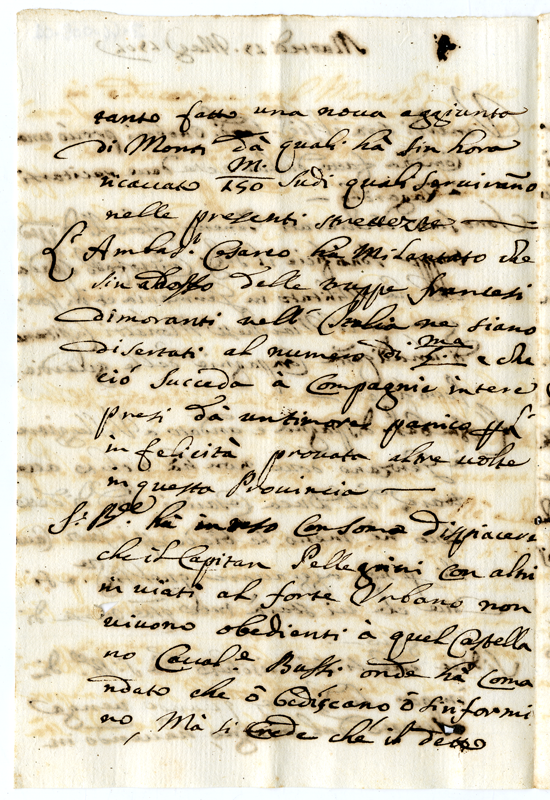 tanto fatto una noua aggiunta
di Monti dà quali hà sin hora
ricauato 150 M. Sudi quali seruiranno
nelle presenti strettezze
L' Ambas.r Cesareo hà Milantato che
sin adosso delle truppe francesi
dimoranti nell' Italia ne siano
disertati al numero di ma e che
ciò succeda à Compagnie intere
presi dà un timore panico
in felicità prouata altre uolte
in questa Prouincia
hà inteso con somo dispiacere
che il Capitan Pellegrini con altri
in uiati al forte Urbano non
uiuono obedienti à quel Castella
no Caual.e Bussi onde hà Coma
ndato che ò bediscano ò si rifermi
no, Mà si Crede che il detto